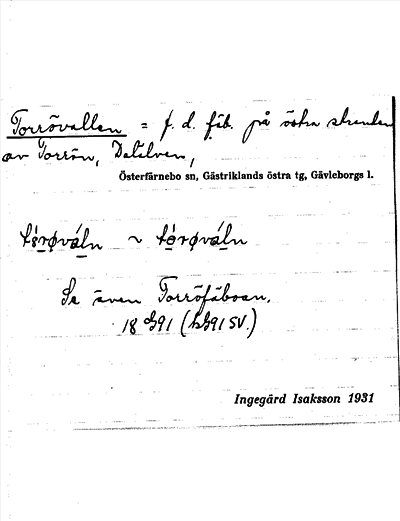 Torrövallen = f. d. fäb. på östra stranden
av Torrön, Dalälven,
Österfärnebo sn, Gästriklands östra tg, Gävleborgs l.
tórøváln ~ tòrøváln
Se även Torröfäboan.
Ingegärd Isaksson 1931